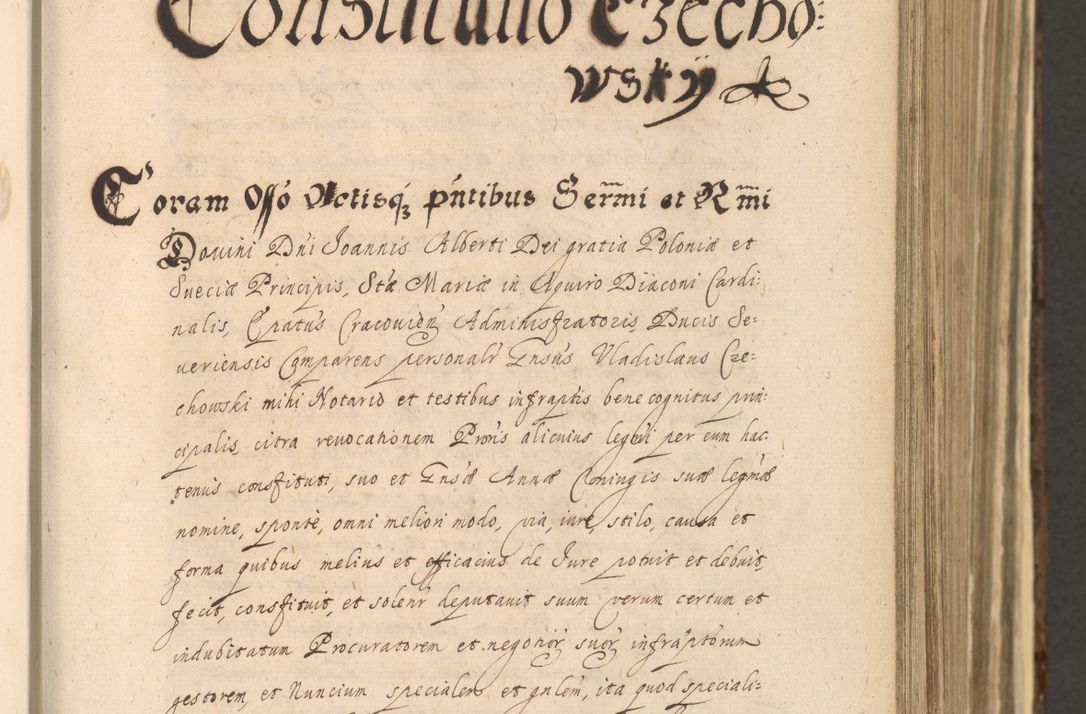 Constitutio Czecho:
wskÿ
Coram Offő Actisq́ꝫ pn̄tibus Serm̄mi et Rm̄mi
Domini Dn̄i Joannis Alberti Dei gratia Poloniæ et
Sueciæ Principis, Stæ Mariæ in Aquiro Diaconi Cardi:
nalis, Ep̄atus Cracovien̄ Administratoris, Ducis Se:
veriensis Comparens personalr̄ Gn̄sus Vladislaus Cze:
chowski mihi Notario et testibus infraptis bene cognitus prin:
cipalis, citra revocationem Procr̄is alicuius legmi per eum hac:
tenus constituti, suo et Gn̄sæ Annæ Coniugis suæ legmæ
nomine, sponte, omni meliori modo, via, iure, stilo, causa et
forma quibus melius et efficacius de Jure potuit et debuit,
fecit, constituit, et solenr̄ deputavit suum verum certum et
indubitatum Procuratorem et negotior̄ suor̄ infraptorum
gestorem, et Nuncium specialem et gnlem, ita quod speciali: